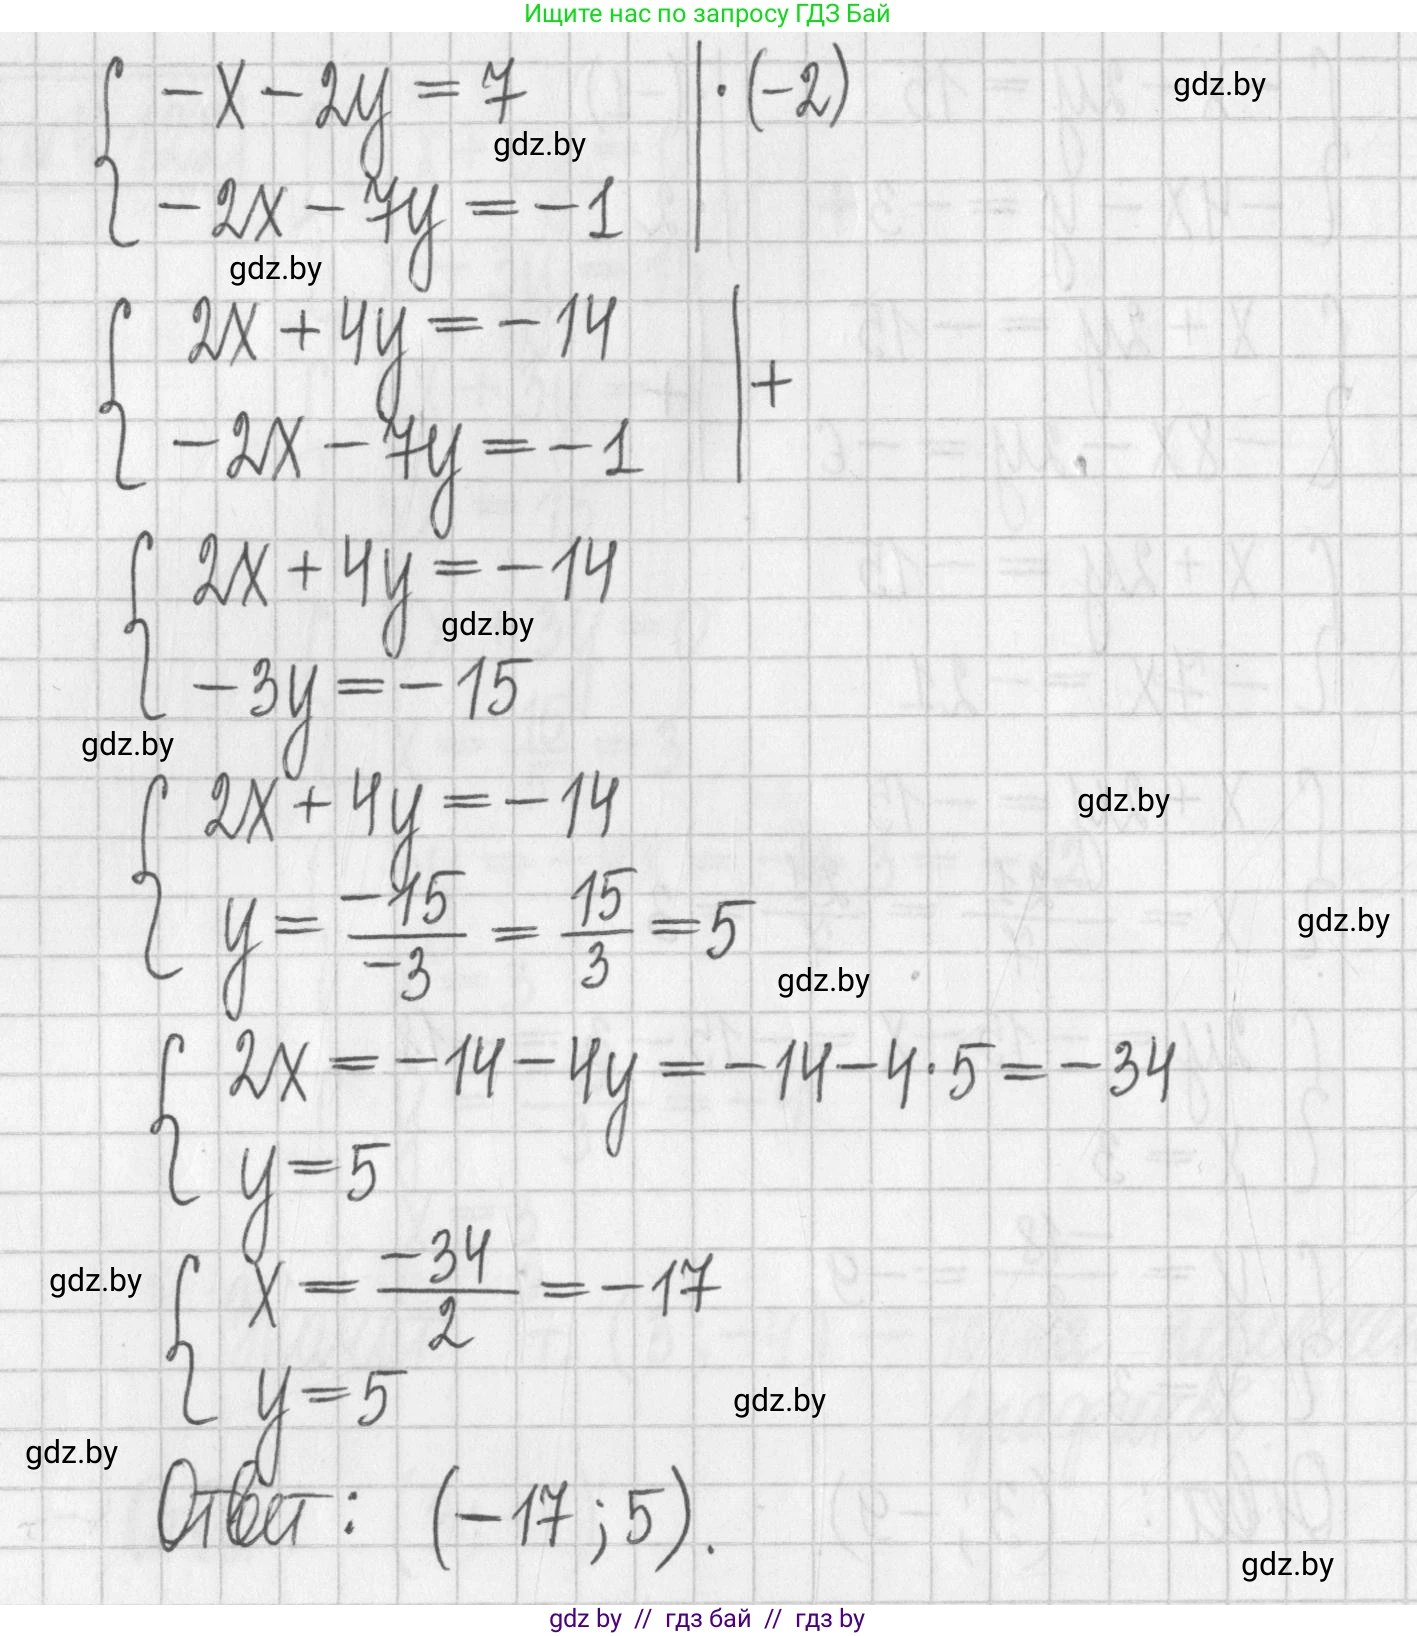 Ищите нас по запросу ГДЗ Бай
-x - 2y = 7 | · (-2) gdz.by
gdz.by
-2x - 7y = -1
gdz.by
2x + 4y = -14 | +
-2x - 7y = -1
2x + 4y = -14
gdz.by
-3y = -15
gdz.by
2x + 4y = -14
gdz.by
y = -15/-3 = 15/3 = 5
gdz.by
gdz.by
2x = -14 - 4y = -14 - 4 · 5 = -34
y = 5
gdz.by
x = -34/2 = -17
y = 5
gdz.by
gdz.by
Ответ: (-17; 5).
gdz.by
gdz by // гдз бай // гдз by